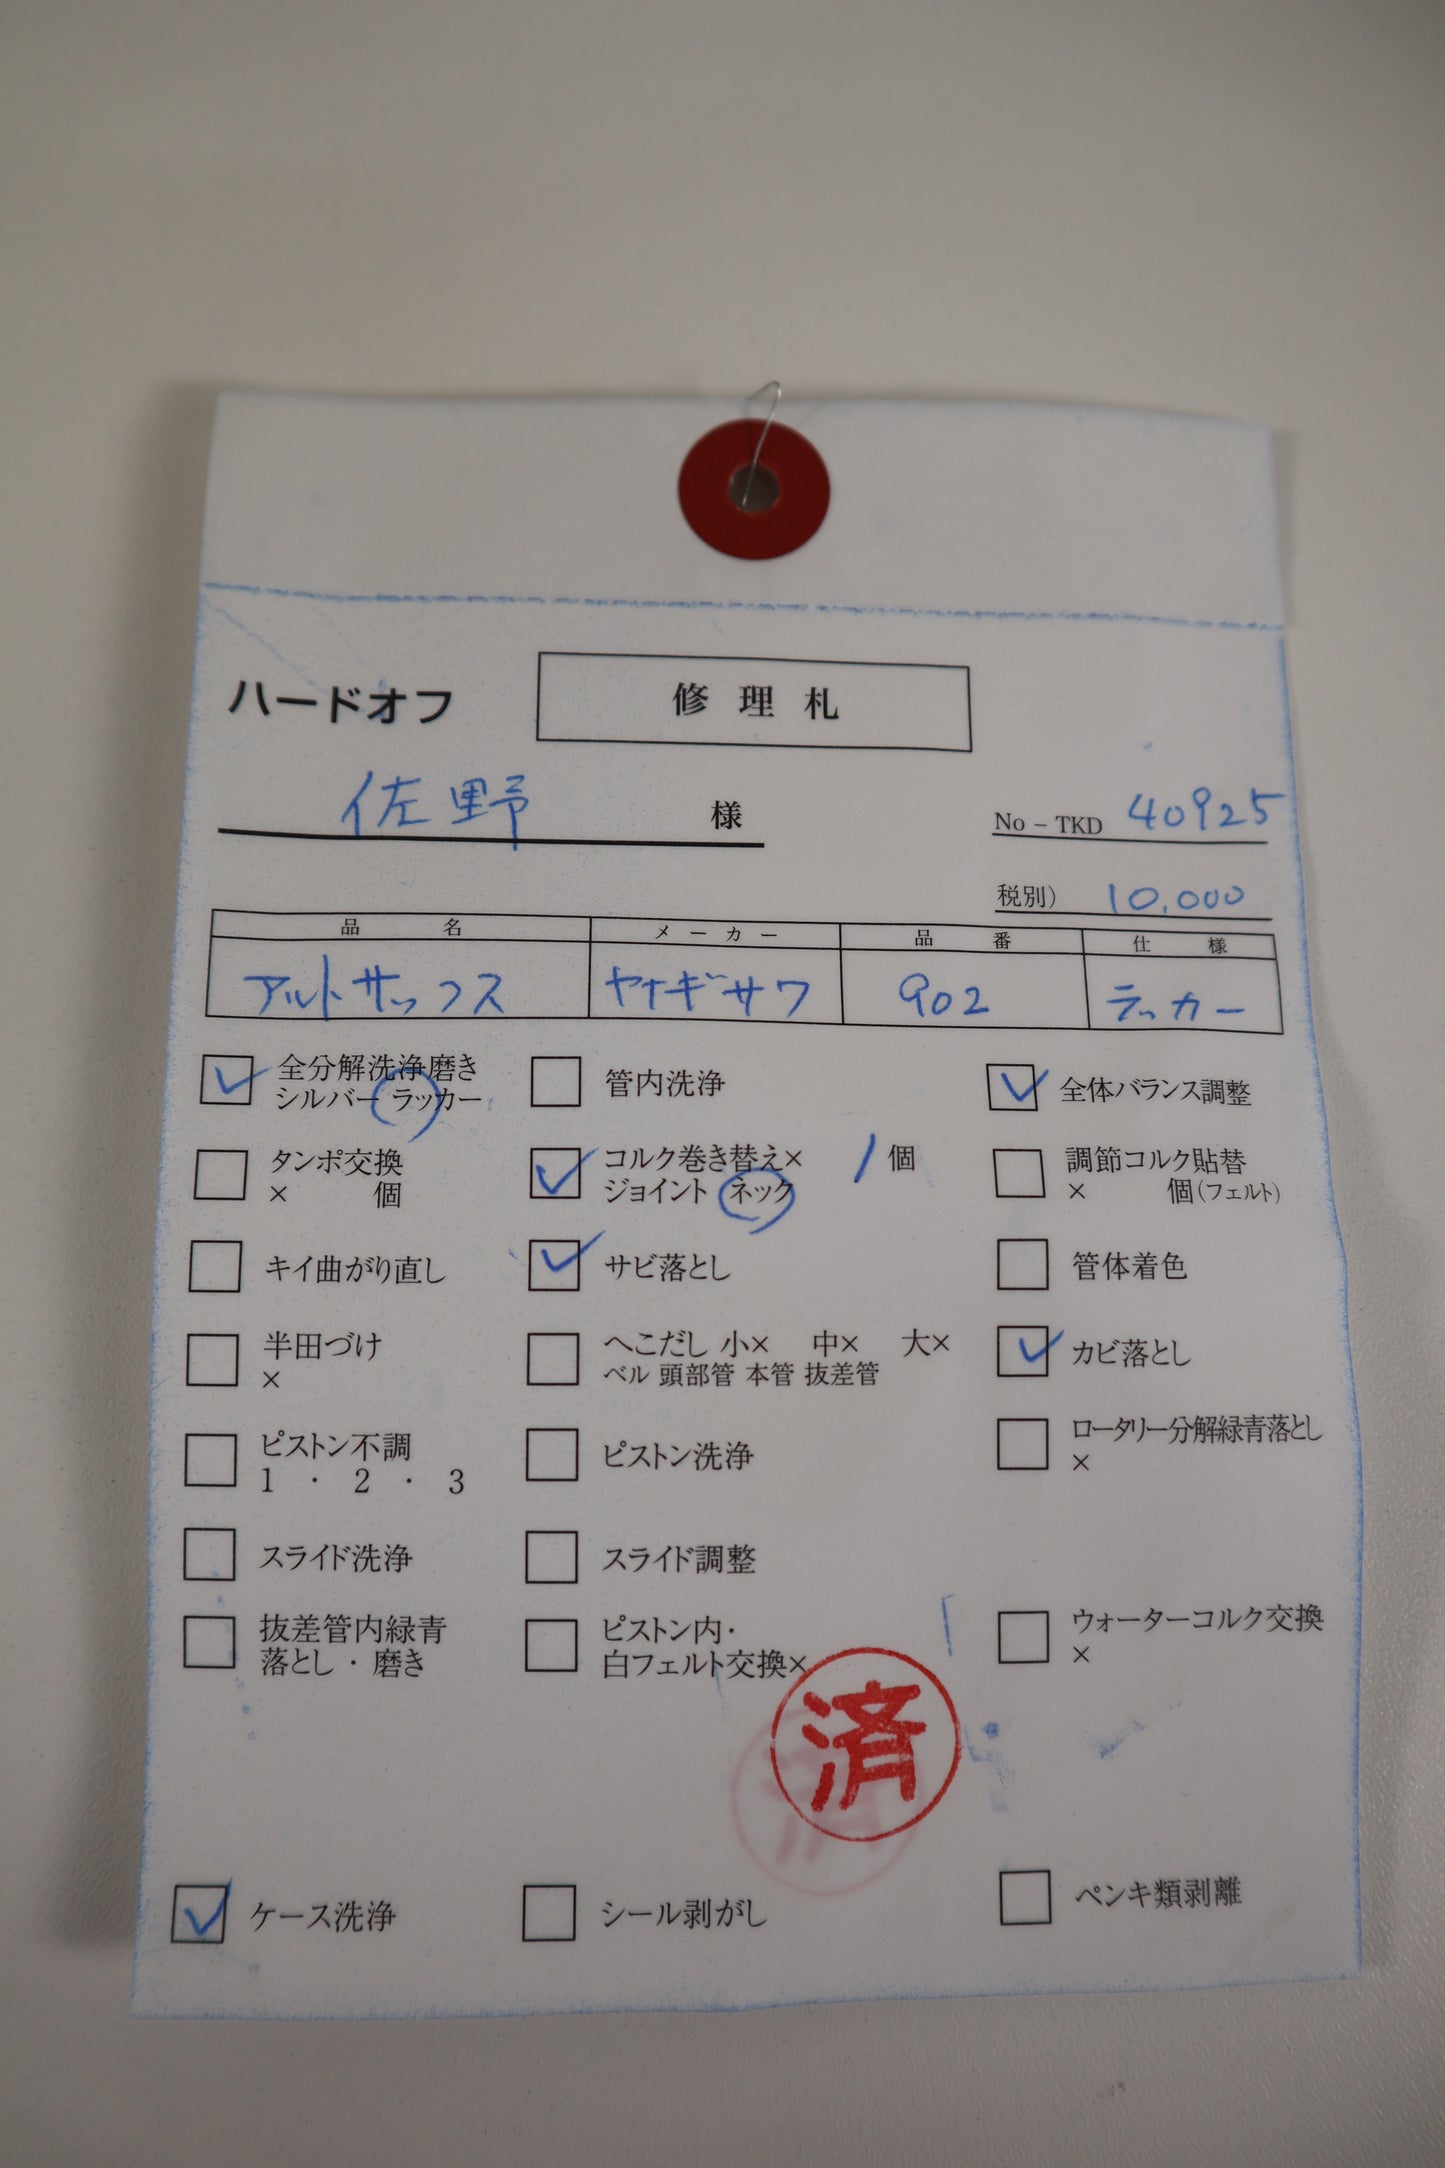 ハードオフ
修理札
佐野 様
No－TKD 40925
税別） 10,000
品名 メーカー 品番 仕様
アルトサックス ヤナギサワ 902 ラッカー
全分解洗浄磨き
シルバー ラッカー
管内洗浄
全体バランス調整
タンポ交換
× 個
コルク巻き替え× 1 個
ジョイント ネック
調節コルク貼替
× 個（フェルト）
キイ曲がり直し
サビ落とし
管体着色
半田づけ
×
へこだし 小× 中× 大×
ベル 頭部管 本管 抜差管
カビ落とし
ピストン不調
1 ・ 2 ・ 3
ピストン洗浄
ロータリー分解緑青落とし
×
スライド洗浄
スライド調整
抜差管内緑青
落とし・磨き
ピストン内・
白フェルト交換×
ウォーターコルク交換
×
済
ケース洗浄
シール剥がし
ペンキ類剥離